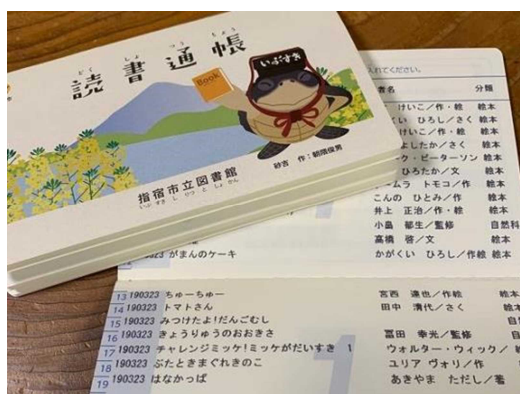 どく しょ つう ちょう
読書通帳
いぶすき
Book
砂吉 作:朝隈俊男
指宿市立図書館
いぶすきしりつとしょかん
入れてください。
者名 分類
けいこ/作・絵 絵本
くい ひろし/さく 絵本
けいこ/作・絵 絵本
よしたか/さく 絵本
ーク・ピーターソン 絵本
ひろたか/文 絵本
ームラ トモコ/作 絵本
こんの ひとみ/作 絵本
井上 正治/作・絵 絵本
小畠 郁生/監修 自然科
高橋 啓/文 絵本
190323 がまんのケーキ かがくい ひろし/作絵 絵本
13 190323 ちゅーちゅー 宮西 達也/作絵 絵本
14 190323 トマトさん 田中 清代/さく 絵本
15 190323 みつけたよ!だんごむし
16 190323 きょうりゅうのおおきさ 冨田 幸光/監修 自然
17 190323 チャレンジミッケ!ミッケがだいすき 1 ウォルター・ウィック/
18 190323 ぶたときまぐれきのこ ユリア ヴォリ/作 絵
19 190323 はなかっぱ あきやま ただし/著